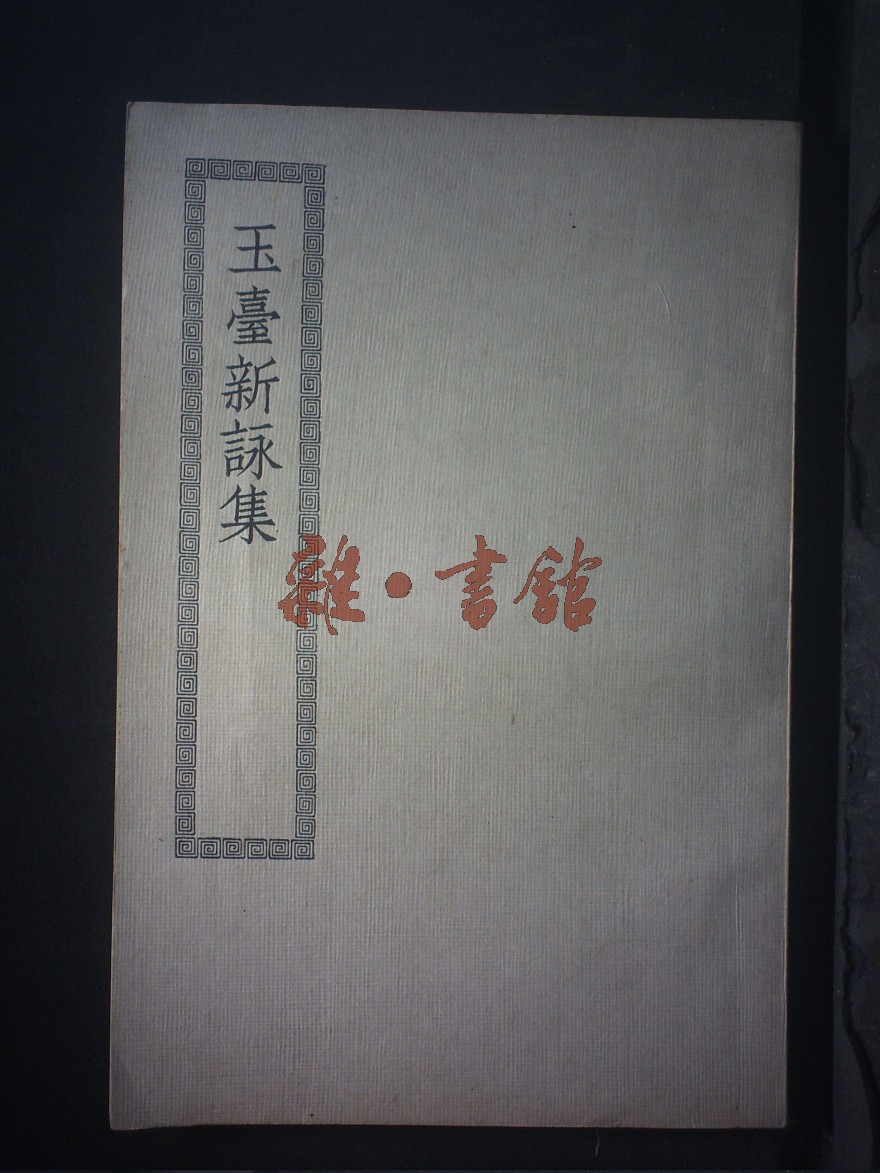 玉臺新詠集
雜·書館